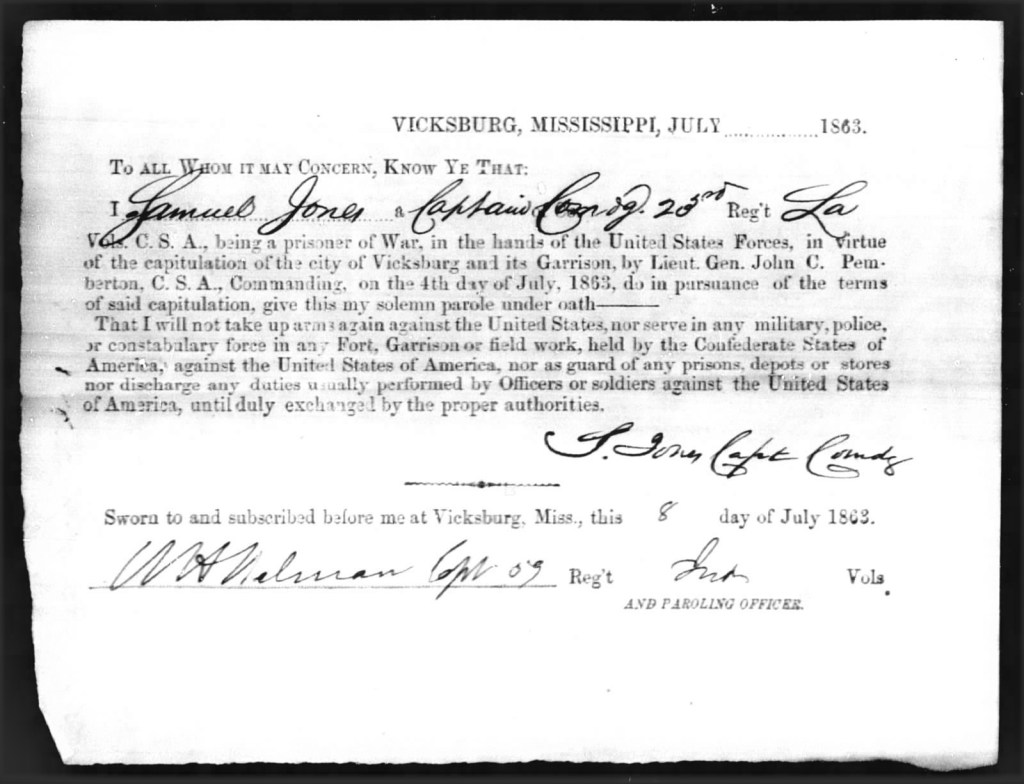 VICKSBURG, MISSISSIPPI, JULY ............... 1863.
TO ALL WHOM IT MAY CONCERN, KNOW YE THAT:
I Samuel Jones a Captain Comdg. 23rd Reg't La
Vols. C. S. A., being a prisoner of War, in the hands of the United States Forces, in virtue
of the capitulation of the city of Vicksburg and its Garrison, by Lieut. Gen. John C. Pem-
berton, C. S. A., Commanding, on the 4th day of July, 1863, do in pursuance of the terms
of said capitulation, give this my solemn parole under oath———
That I will not take up arms again against the United States, nor serve in any military, police,
or constabulary force in any Fort, Garrison or field work, held by the Confederate States of
America, against the United States of America, nor as guard of any prisons, depots or stores
nor discharge any duties usually performed by Officers or soldiers against the United States
of America, until duly exchanged by the proper authorities.
S. Jones Capt Comdg
Sworn to and subscribed before me at Vicksburg, Miss., this 8 day of July 1863.
W H Capt 59 Reg't Ind Vols.
AND PAROLING OFFICER.